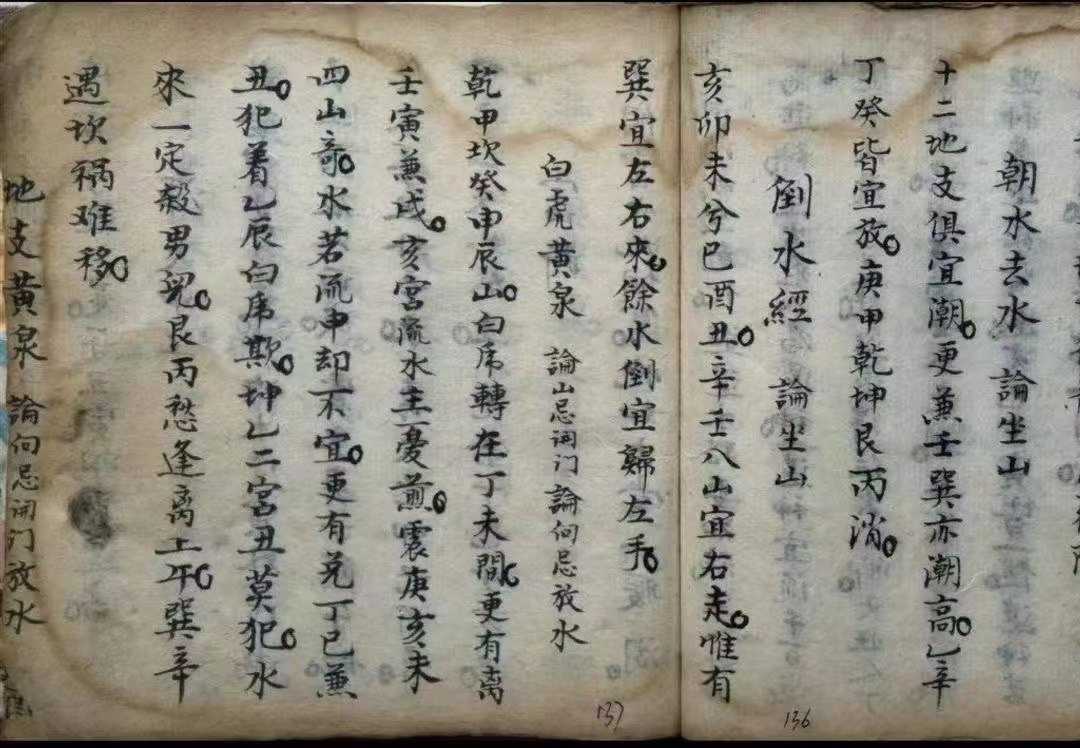 朝水去水 論坐山
十二地支俱宜潮。更兼壬巽亦潮高。乙辛
丁癸皆宜放。庚甲乾坤艮丙消。
倒水經 論坐山
亥卯未兮巳酉丑。辛壬八山宜右走。惟有
巽宜左右來。餘水倒宜歸左手。
白虎黃泉 論山忌開门論向忌放水
乾甲坎癸申辰山。白虎轉在丁未間。更有离
壬寅兼戌。亥宮流水主憂煎。震庚亥未
四山竒。水若流申却不宜。更有兑丁巳兼
丑。犯着乙辰白虎欺。坤乙二宮丑莫犯。水
來一定殺男兒。艮丙愁逢离上午。巽辛
遇坎禍难移。
地支黃泉 論向忌開门放水
137
136